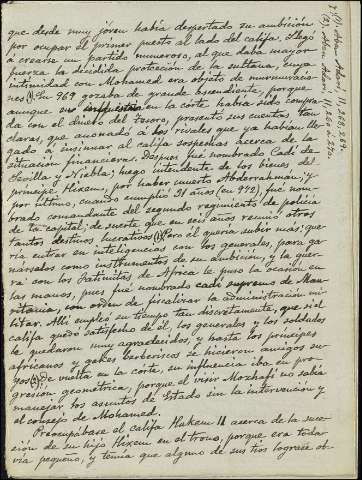 que desde muy jóven había despertado su ambición
por ocupar el primer puesto al lado del califa. Llegó
á crearse un partido numeroso, al que daba mayor
fuerza la decidida protección de la sultana, cuya
intimidad con Mohamed era objeto de murmuracio-
nes(1). En 969 gozaba de grande ascendiente, porque
aunque su en la corte había sido compra-
da con el dinero del Tesoro, presentó sus cuentas tan
claras, que anonadó á los rivales que ya habían lle-
gado á insinuar al califa sospechas acerca de su
situación financiera. Después fué nombrado Cadí de
Sevilla y Niebla; luego intendente de los bienes del
príncipe Hixem, por haber muerto Abderrahman; y
por último, cuando cumplió 31 años (en 972), fué nom-
brado comandante del segundo regimiento de policía
de la capital; de suerte que en seis años reunió otros
tantos destinos lucrativos(1). Pero él quería subir más: que-
ría entrar en inteligencias con los generales, para ga-
nárselos como instrumentos de su ambición, y la gue-
rra con los Fatimitas de Africa le puso la ocasión en
las manos, pues fué nombrado cadí supremo de Mau-
ritania, con orden de fiscalizar la administración mi-
litar. Allí empleó su tiempo tan discretamente, que si el
califa quedó satisfecho de él, los generales y los soldados
le quedaron muy agradecidos, y hasta los príncipes
africanos y gakes berberiscos se hicieron amigos su-
yos(2). De vuelta en la corte, su influencia iba en pro-
gresion geométrica, porque el visir Mozhafí no sabía
manejar los asuntos de Estado sin la intervención y
el consejo de Mohamed.
Preocupábase el califa Hakem II acerca de la suce-
sión de su hijo Hixem en el trono, porque era toda-
vía pequeño, y temía que alguno de sus tíos lograse ob-
(1) Aben Adarí, II, 268, 269.
(2) Aben Adarí, II,